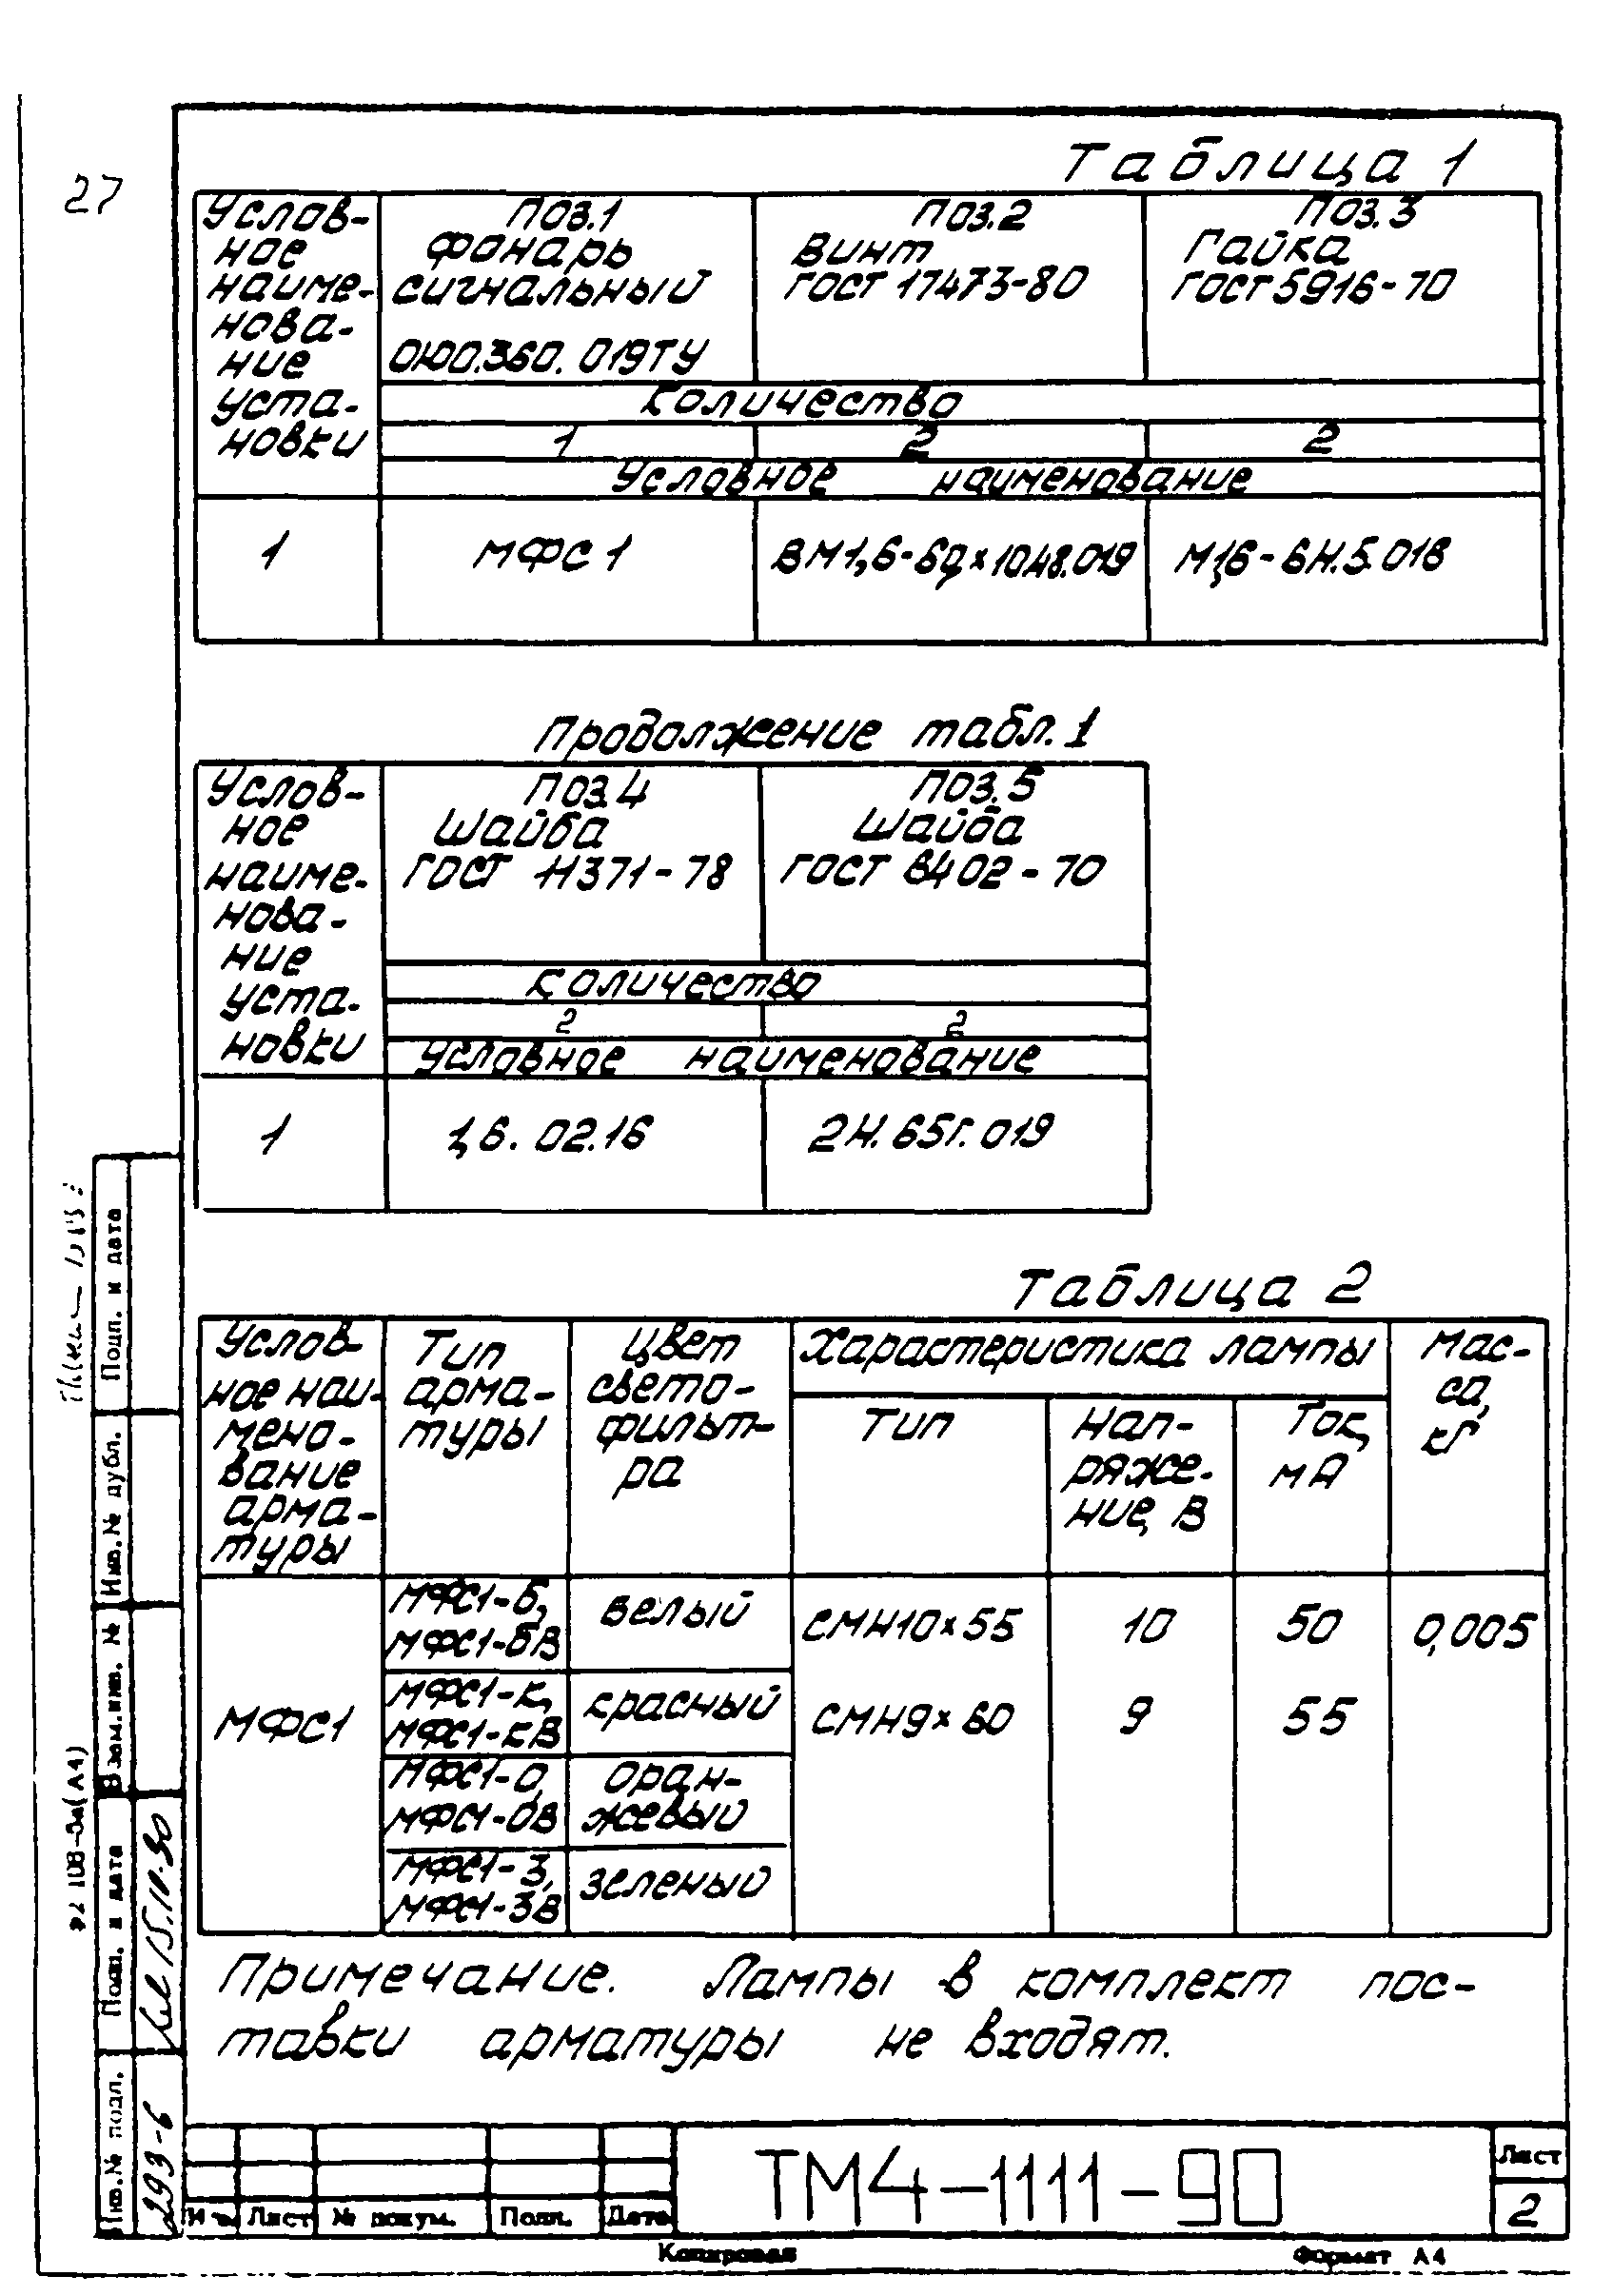 27
Таблица 1
Услов-
ное
наиме-
нова-
ние
уста-
новки
Поз.1
Фонарь
сигнальный
ОЮ0.360.019ТУ
Поз.2
Винт
ГОСТ 17473-80
Поз.3
Гайка
ГОСТ 5916-70
Количество
1 2 2
Условное наименование
1 МФС1 ВМ1,6-6д×10.48.019 М1,6-6Н.5.018
Продолжение табл.1
Услов-
ное
наиме-
нова-
ние
уста-
новки
Поз.4
Шайба
ГОСТ 11371-78
Поз.5
Шайба
ГОСТ 6402-70
Количество
2 2
Условное наименование
1 1,6.02.16 2Н.65Г.019
Таблица 2
Услов-
ное наи-
мено-
вание
арма-
туры
Тип
арма-
туры
Цвет
свето-
фильт-
ра
Характеристика лампы
Тип
Нап-
ряже-
ние, В
Ток,
мА
Мас-
са,
кг
МФС1
МФС1-Б,
МФС1-БВ
белый
СМН10×55 10 50 0,005
МФС1-К,
МФС1-КВ
красный
СМН9×60 9 55
МФС1-О,
МФС1-ОВ
оран-
жевый
МФС1-З,
МФС1-ЗВ
зеленый
Примечание. Лампы в комплект пос-
тавки арматуры не входят.
Подп. и дата
Инв.№ дубл.
Взам.инв. №
Подп. и дата
15.10.90
Инв.№ подл.
293-6
Лист № докум. Подп. Дата
ТМ4-1111-90
Лист
2
Копировал
Формат А4